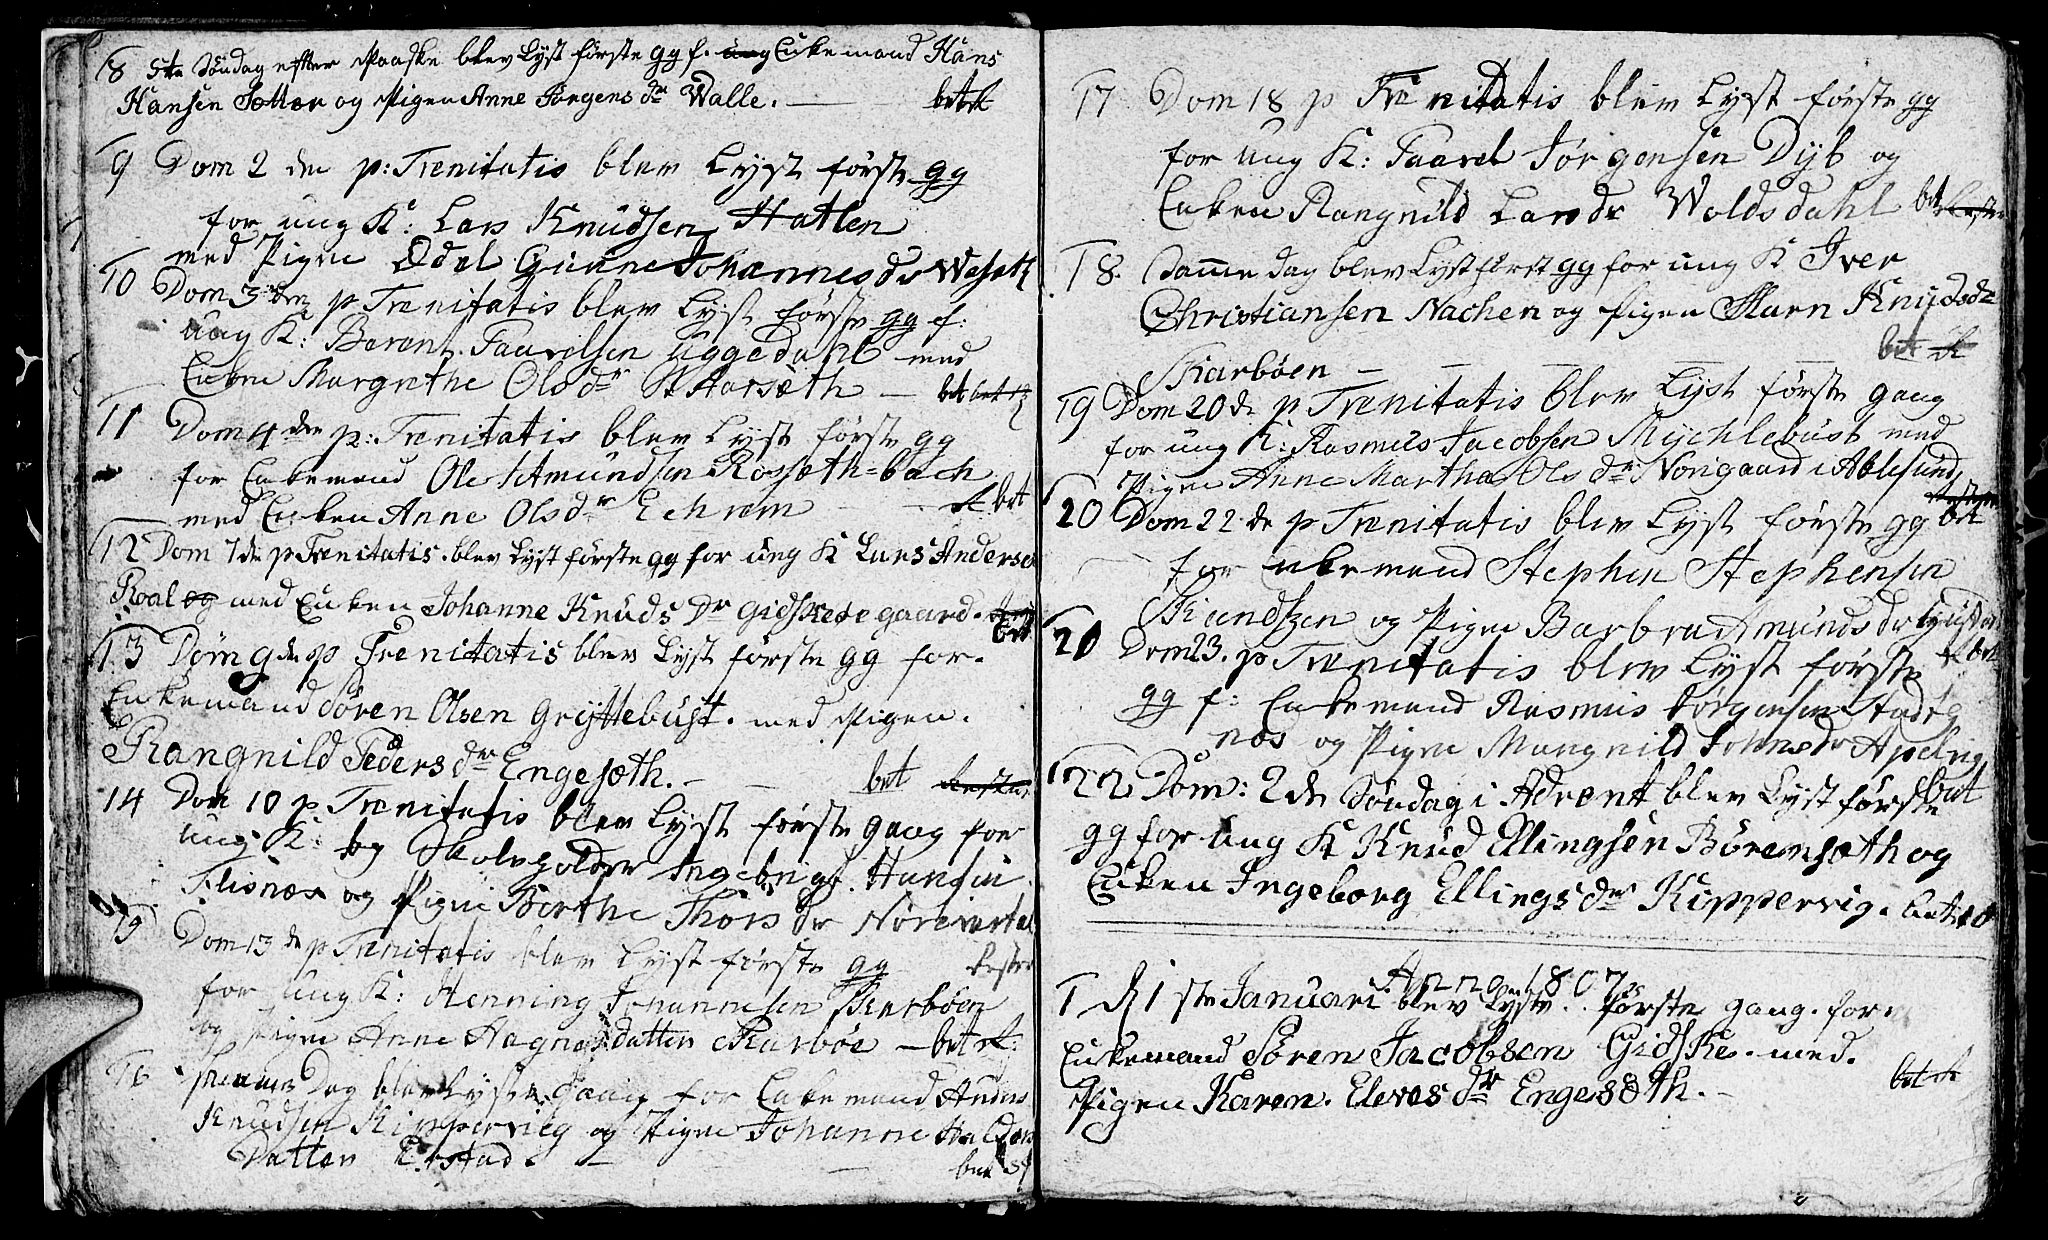 8 5te Söndag efter Paaske blev Lyst förste gg f. ung Enkemand Hans
Hansen Sætter og Pigen Anne Jörgens dr Walle. — betalt
9 Dom 2 den p: Trenitatis blev Lyst förste gg
for ung K: Lars Knudsen Hatlen
med Pigen Odel Gunne Johannes dr Wasæth
10 Dom 3 den p Trenitatis blev Lyst förste gg f:
ung K: Berent Paavelsen Uggedahl med
Enken Margrethe Ols dr Harsæth — bet
11 Dom 4 den p: Trenitatis blev Lyst förste gg
for Enkemand Ole Amundsen Rossæth=bach
med Enken Anne Ols dr Echrem bet
12 Dom 7 de p Trenitatis. blev Lyst förste gg for ung K Lars Andersen
Roal og med Enken Johanne Knuds Dr Gidskesegaard.
bet
13 Dom 9 de p Trenitatis blev Lyst förste gg for.
Enkemand Sören Olsen Gryttebust. med Pigen.
Rangnild Peders dr Engesæth. — bet
14 Dom 10 p Trenitatis blev Lyst förste gang for
ung K: og Skoleholder Ingebrigt Hansen
Flisnæs og Pigen Berthe Thors dr Nöreivartdal
15 Dom 13 de p Trenitatis blev Lyst förste gg
for ung K: Henning Johannesen Skarböen
og Pigen Anne Magnes datter Skarböe — bet
16 Samme Dag blev Lyst gang for Enkemand Anders
Knudsen Kippervieg og Pigen Johanne Halders
Datter Erstad — bet
17 Dom 18 p Trenitatis blev Lyst förste gg
for ung K: Paavel Jörgensen Dyb og
Enken Rangnild Lars dr Woldsdahl bet
18. Samme dag blev Lyst först gg for ung K Iver
Christiansen Nachen og Pigen Marn Knudsdr
bet
Skarböen —
19 Dom 20 de p Trenitatis blev Lyst förste gang
for ung K: Rasmus Jacobsen Mychlebust med
Pigen Anne Martha Ols dr Norigaard i Ahlesund
20 Dom 22 de p Trenitatis blev Lyst förste gg bet
for Enkemand Stephen Stephensen
Strandtzen og Pigen Barbra Amunds dr
20 Dom 23. p Trenitatis blev Lyst förste bet
gg f: Enkemand Rasmus Jörgensen Stadtg
næs og Pigen Mangnild Johns dr Apelng
22 Dom: 2 de Söndag i Advent blev Lyst förste bet
gg for ung K Knud Ellingsen Börensæth og
Enken Ingeborg Ellings dr Kippervig. bet
Anno 1807
1 D 1 ste Januari blev Lyst. förste gang. for
Enkemand Sören Jacobsen Gidske. med.
Pigen Karen. Elevas dr Engesöth. — bet